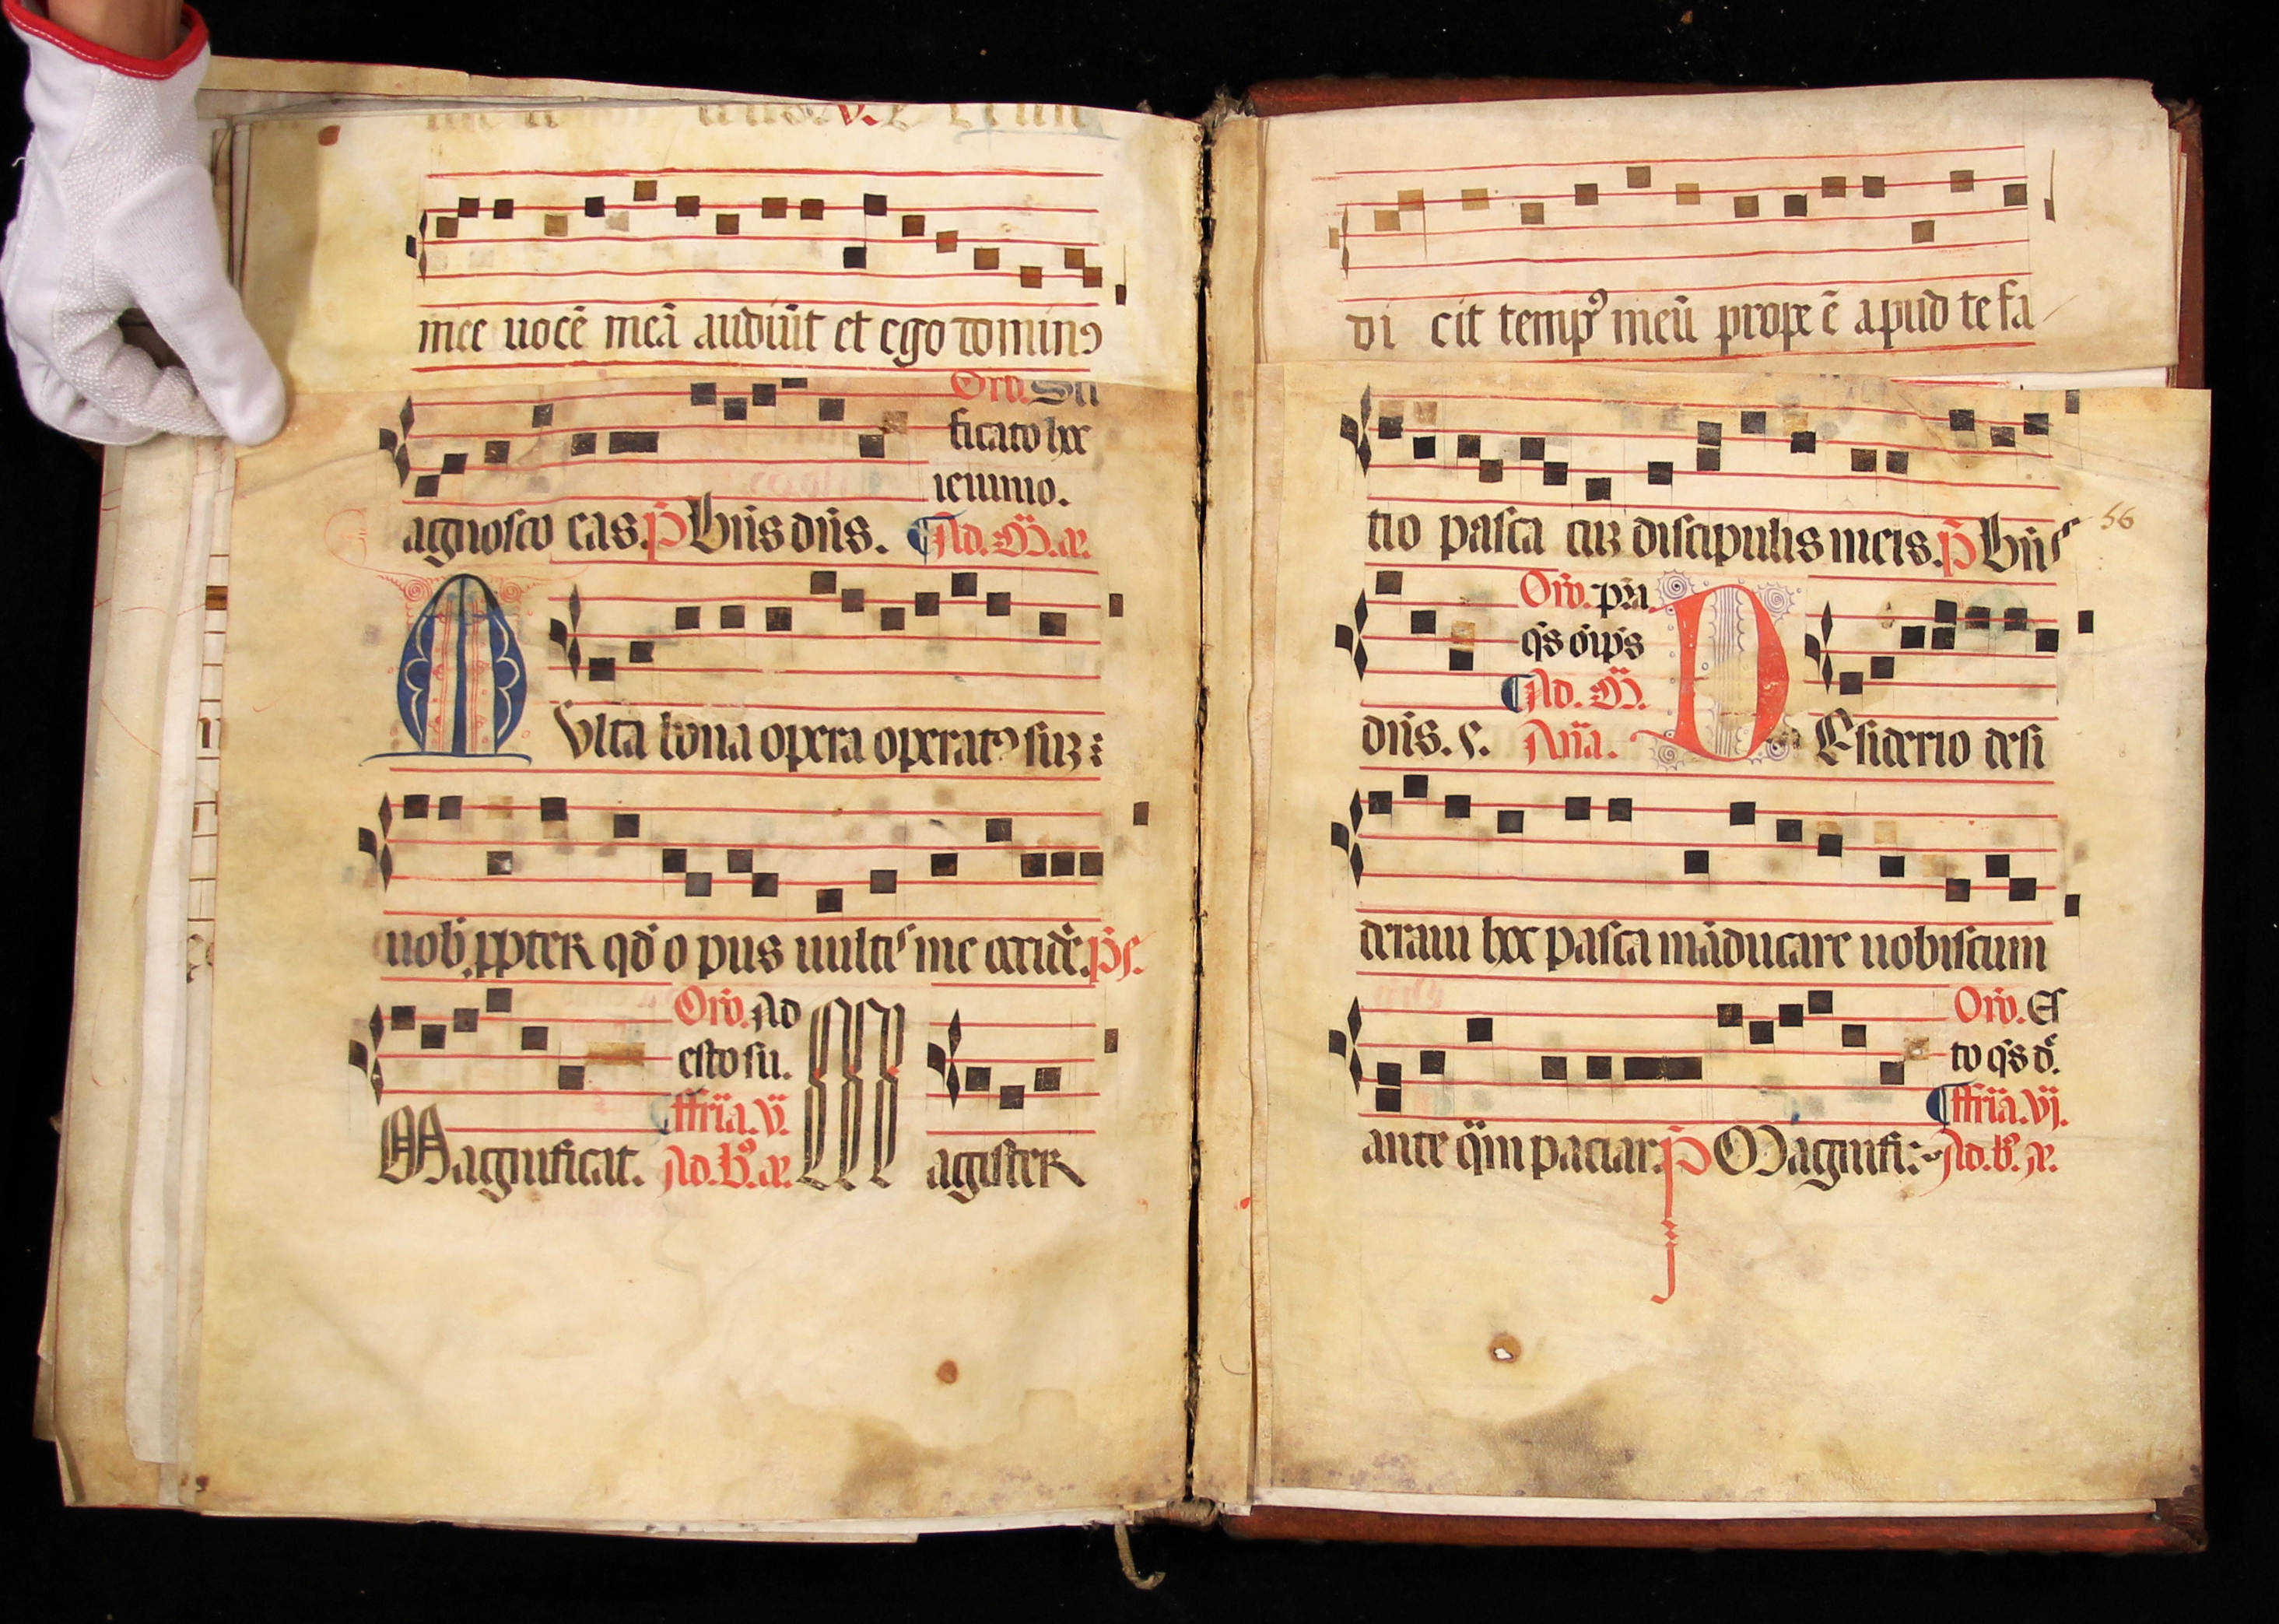 mee uocē meā audiūt et ego dominꝰ
Orō. Sci
ficato hoc
ieiunio.
agnosco eas. p̄ Bn̄s dn̄s. Ad. M̄. a.
Vlta bona opera operatꝰ suꝫ
uob̓ ꝓpter qd̓ o pus uultis me occidē. ps.
Orō. Ad
esto su.
ffria. v.
Magnificat. Ad. B. a. M agister
di cit tempꝰ meū prope ē apud te fa
cio pasca cū discipulis meis. p̄ Bn̄s
56
Orō. p̄ra
q̄s oīps
Ad. M̄.
dn̄s. s. Aña. D Esiderio desi
deraui hoc pasca māducare uobiscum
Orō. Es
to q̄s d̓.
ffria. vj.
ante q̄m paciar. p̄ Magnifi: Ad. b. a.